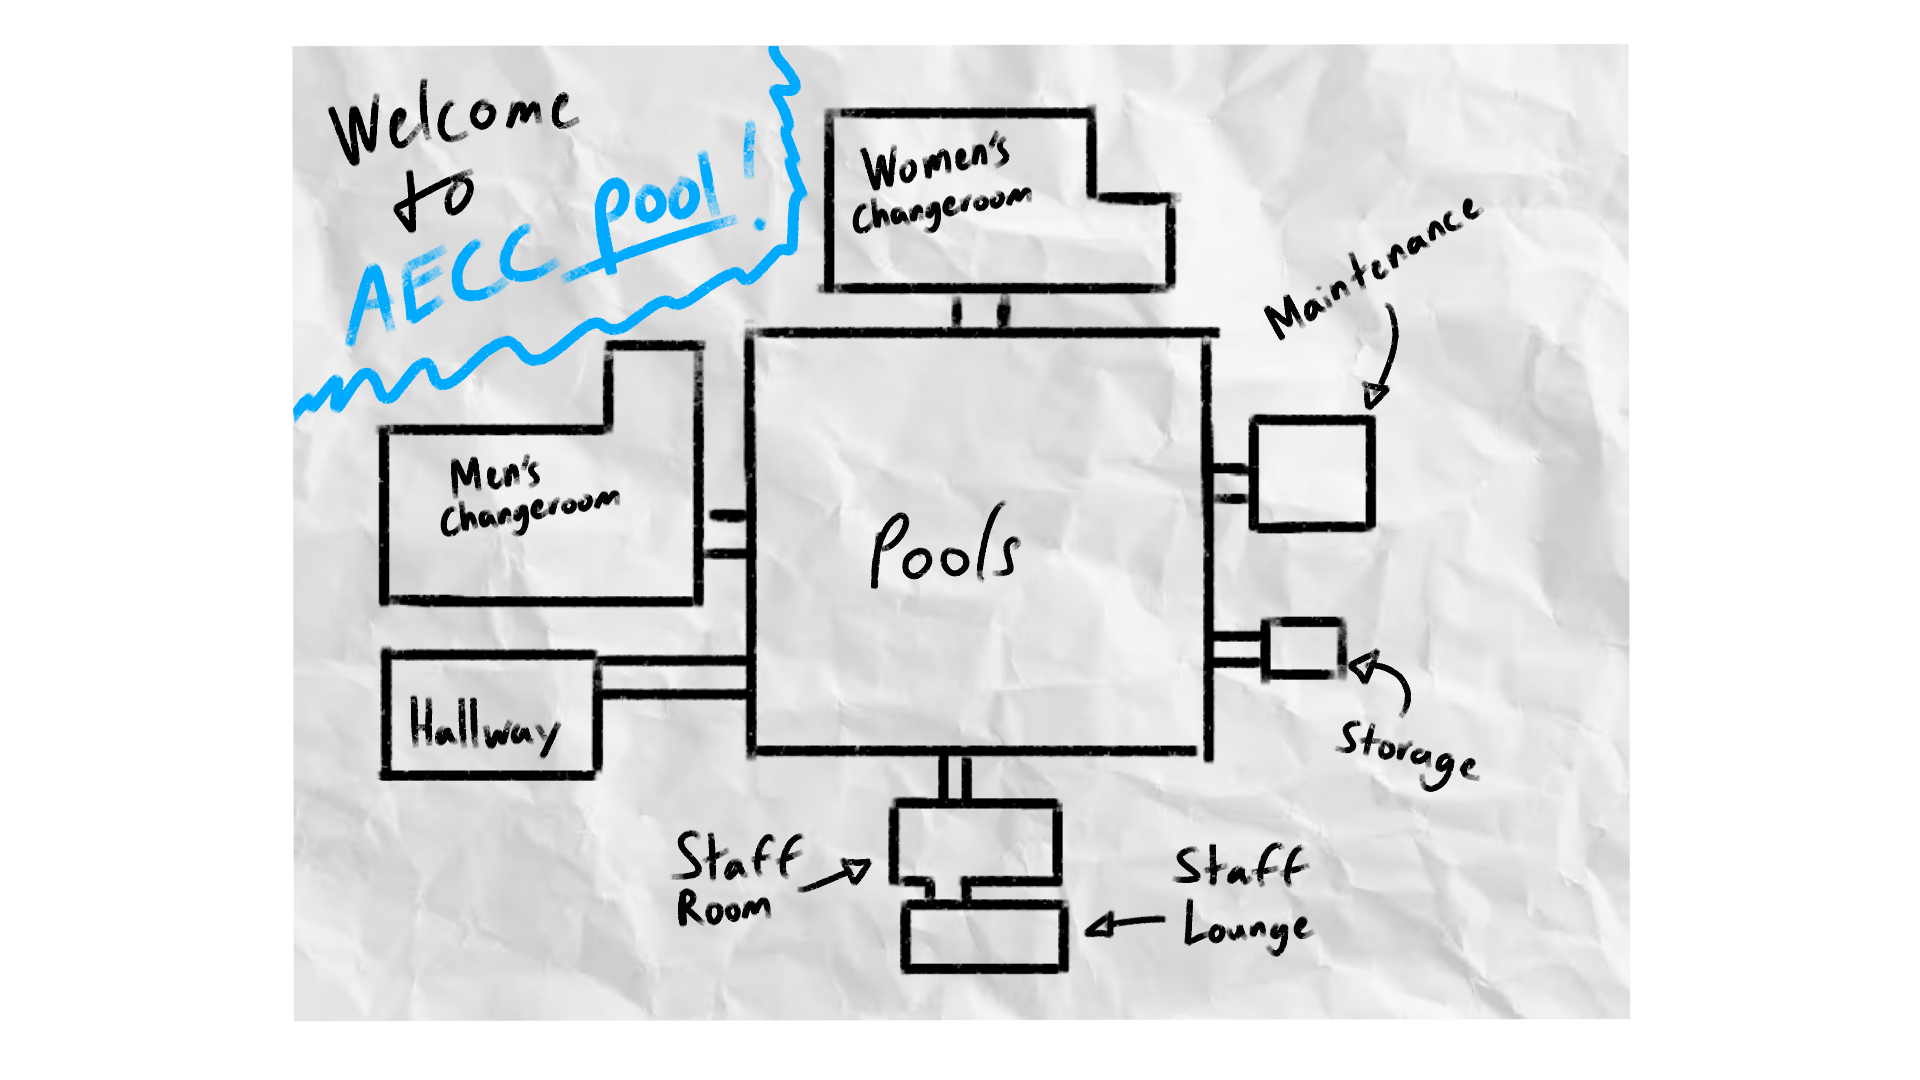 Welcome
to
AECC Pool!
Women's
Changeroom
Maintenance
Men's
Changeroom
Pools
Hallway
Storage
Staff
Room
Staff
Lounge